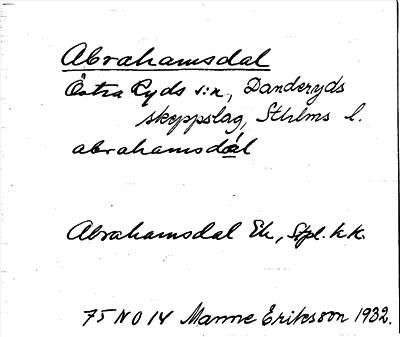 Abrahamsdal
Östra Ryds s:n, Danderyds
skeppslag, Sthlms l.
abrahamsdál
Abrahamsdal Ek, Stpl. kk.
75 NO 14 Manne Eriksson 1932.